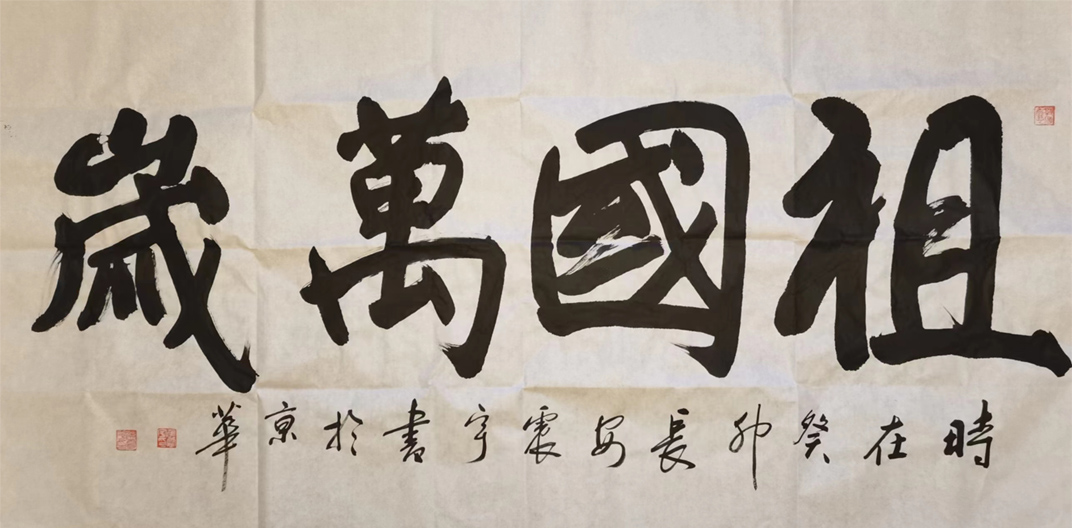 祖國萬歲
時在癸卯長安震宇書於京華